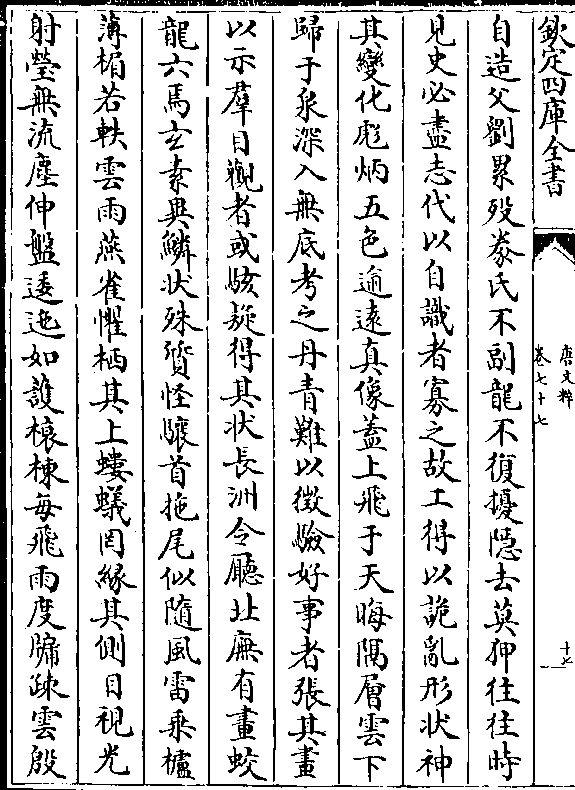 欽定四庫全書
唐文粹
卷七十七
十七
自造父劉累歿豢氏不副龍不復擾隱去莫狎往往時
見史必盡志代以自識者寡之故工得以詭亂形状神
其變化彪炳五色逾遠真像蓋上飛于天晦隔層雲下
歸于泉深入無底考之丹青難以徴驗好事者張其畫
以示羣目觀者或駭㫌得其状長洲令廳北廡有畫蛟
龍六馬玄素異鱗状殊質怪驤首拖尾似隨風雷乗櫨
薄楣若軼雲雨燕雀懼栖其上螻蟻罔緣其側目視光
射瑩無流塵伸盤逶迤如護榱棟每飛雨度牗疎雲殷